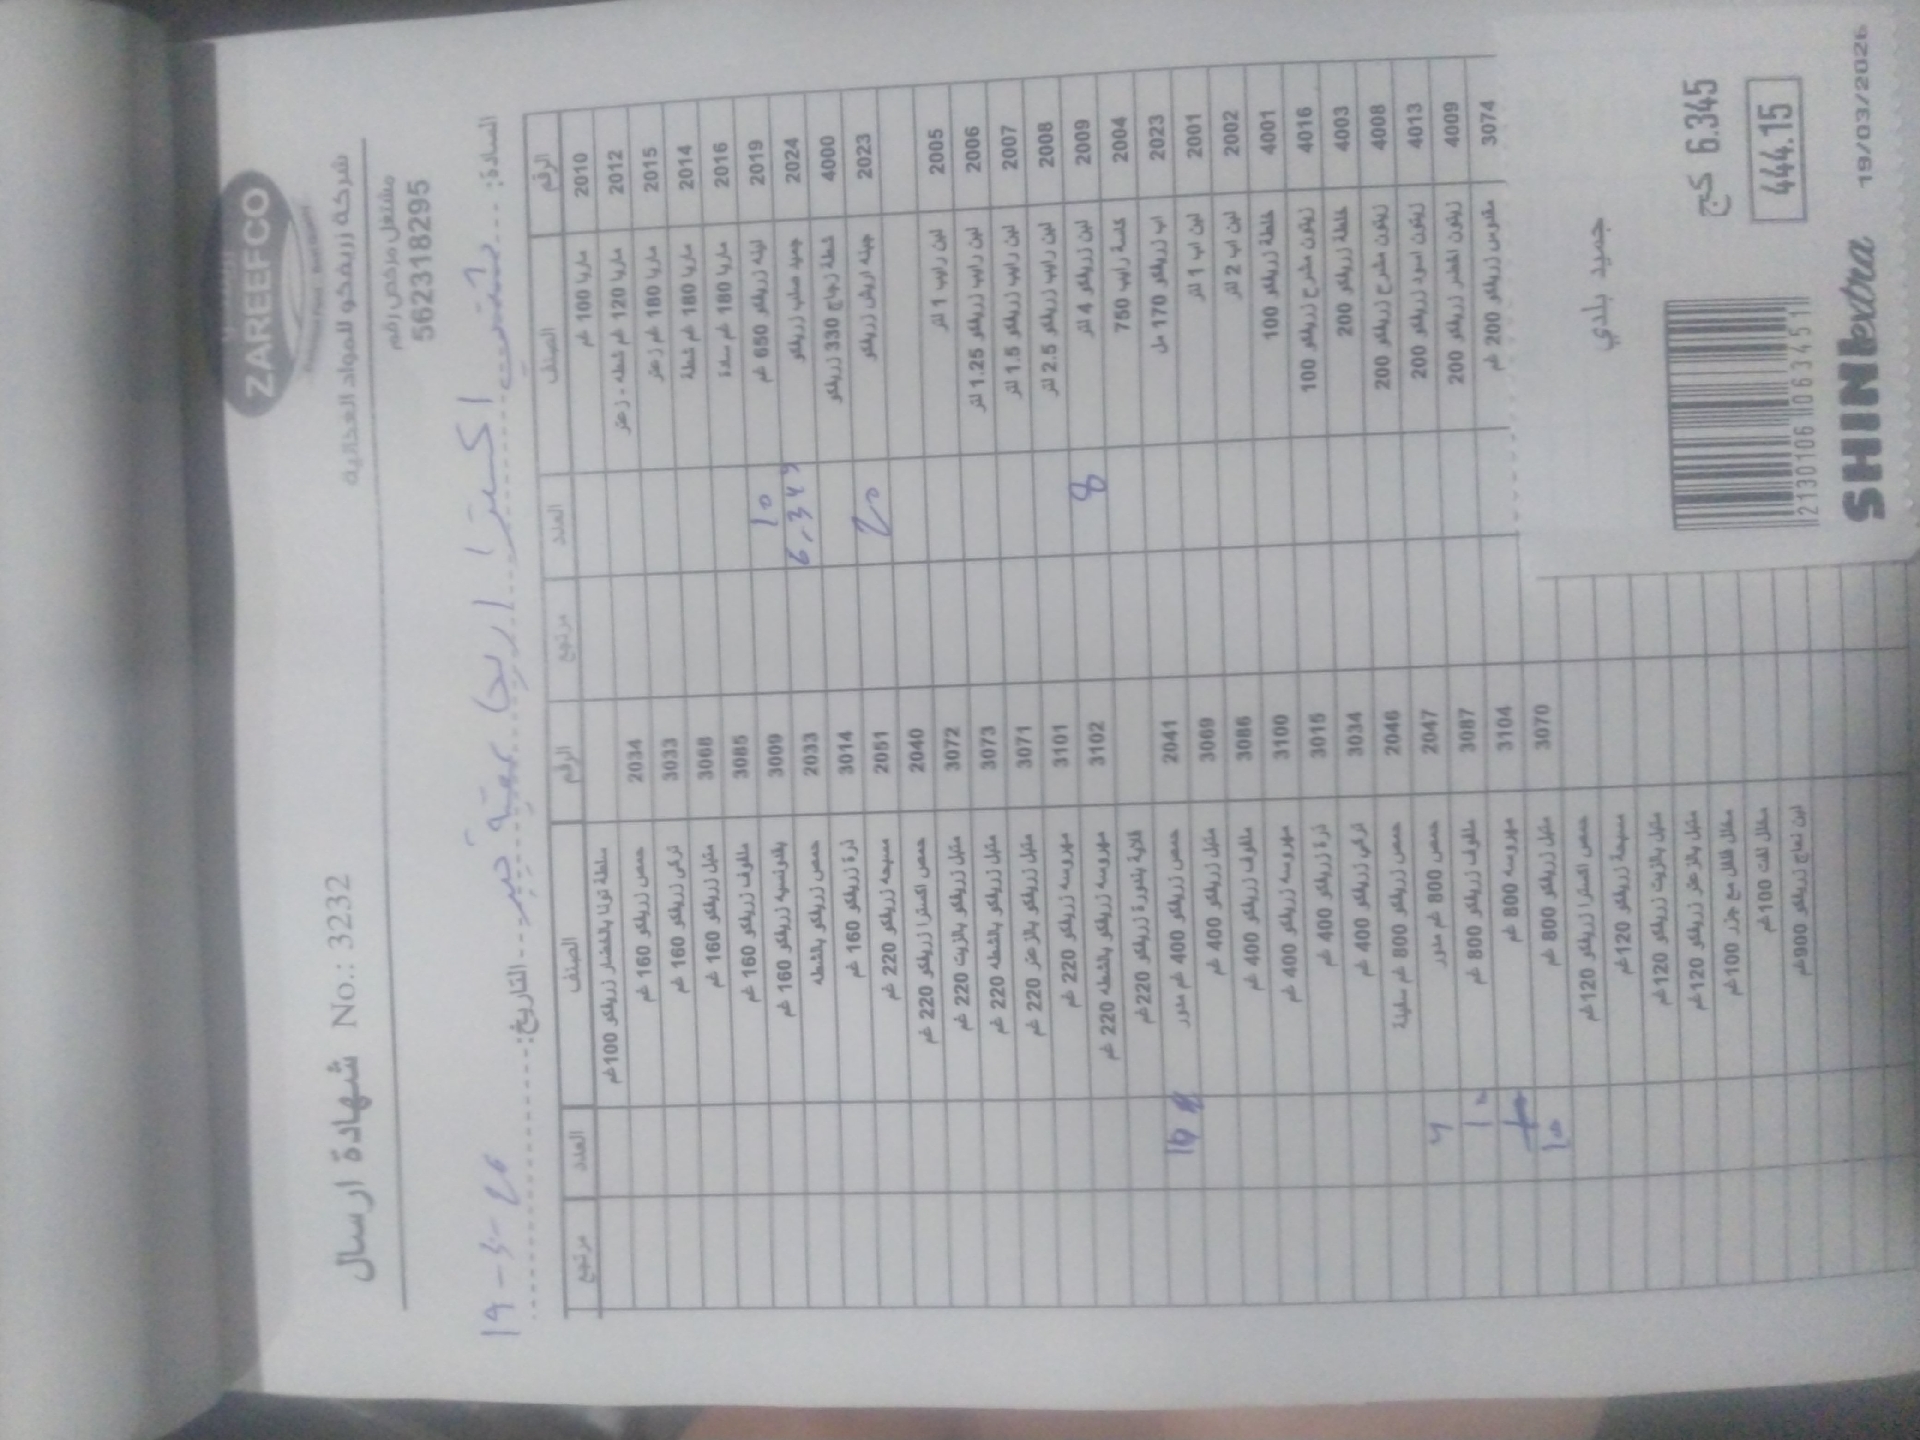 ZAREEFCO
شركة زريفكو للمواد الغذائية
مشتغل مرخص رقم
562318295
شهادة ارسال No.: 3232
السادة: اكسترا التاريخ: 19-3-26
الرقم الصنف العدد مرتجع
2010 ماريا 100 غم
2012 ماريا 120 غم شطه - زعتر
2015 ماريا 180 غم زعتر
2014 ماريا 180 غم شطة
2016 ماريا 180 غم سادة
2019 لبنه زريفكو 650 غم 10
2024 جميد صلب زريفكو 6,345
4000 شطة زجاج 330 زريفكو
2023 جبنه اريش زريفكو 20
2005 لبن رايب 1 لتر
2006 لبن رايب زريفكو 1.25 لتر
2007 لبن رايب زريفكو 1.5 لتر
2008 لبن رايب زريفكو 2.5 لتر
2009 لبن زريفكو 4 لتر 8
2004 كاسة رايب 750
2023 اب زريفكو 170 مل
2001 لبن اب 1 لتر
2002 لبن اب 2 لتر
4001 خلطة زريفكو 100
4016 زيتون مشرح زريفكو 100
4003 خلطة زريفكو 200
4008 زيتون مشرح زريفكو 200
4013 زيتون اسود زريفكو 200
4009 زيتون اخضر زريفكو 200
3074 مقدوس زريفكو 200 غم
الرقم الصنف العدد مرتجع
سلطة تونا بالخضار زريفكو 100غم
2034 حمص زريفكو 160 غم
3033 تركي زريفكو 160 غم
3068 متبل زريفكو 160 غم
3085 ملفوف زريفكو 160 غم
3009 بقدونسيه زريفكو 160 غم
2033 حمص زريفكو بالشطه
3014 ذرة زريفكو 160 غم
2051 مسبحه زريفكو 220 غم
2040 حمص اكسترا زريفكو 220 غم
3072 متبل زريفكو بالزيت 220 غم
3073 متبل زريفكو بالشطه 220 غم
3071 متبل زريفكو بالزعتر 220 غم
3101 مهروسه زريفكو 220 غم
3102 مهروسه زريفكو بالشطه 220 غم
قلاية بندورة زريفكو 220غم
2041 حمص زريفكو 400 غم مدور
3069 متبل زريفكو 400 غم
3086 ملفوف زريفكو 400 غم
3100 مهروسه زريفكو 400 غم
3015 ذرة زريفكو 400 غم
3034 تركي زريفكو 400 غم
2046 حمص زريفكو 800 غم سفينة
2047 حمص 800 غم مدور
3087 ملفوف زريفكو 800 غم 10
3104 مهروسه 800 غم
3070 متبل زريفكو 800 غم 10
حمص اكسترا زريفكو 120غم
مسبحة زريفكو 120غم
متبل بالزيت زريفكو 120غم
متبل بالزعتر زريفكو 120غم
مخلل فلفل مع جزر 100غم
مخلل لفت 100غم
لبن نعاج زريفكو 900غم
جميد بلدي
6.345 كج
444.15
2130106063451
SHINI extra 19/03/2026